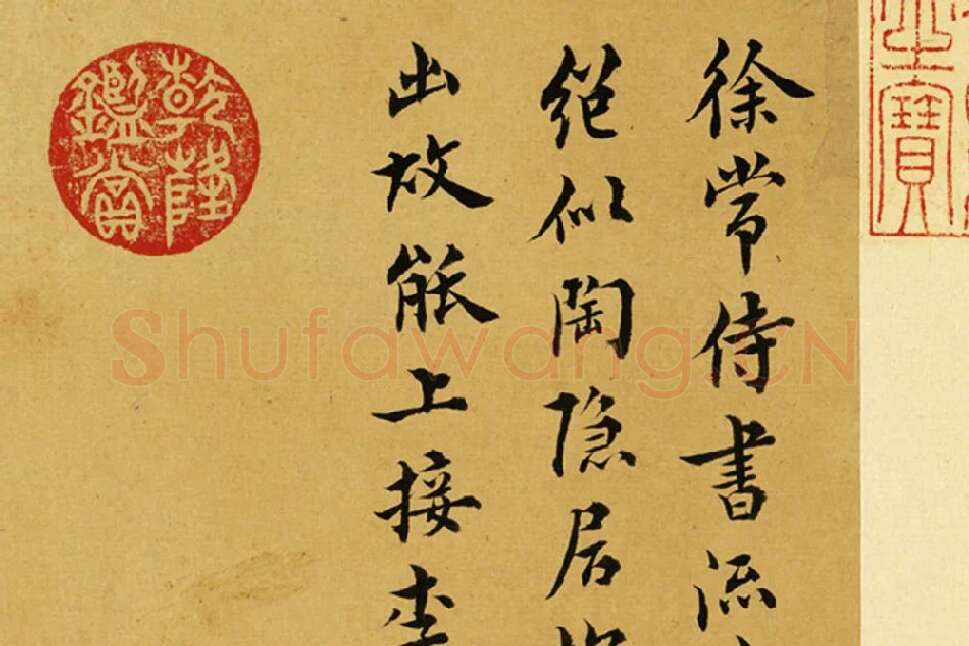 徐常侍書流
絕似陶隱居
出故能上接李
乾隆鑑賞
寶
ShufawangCN